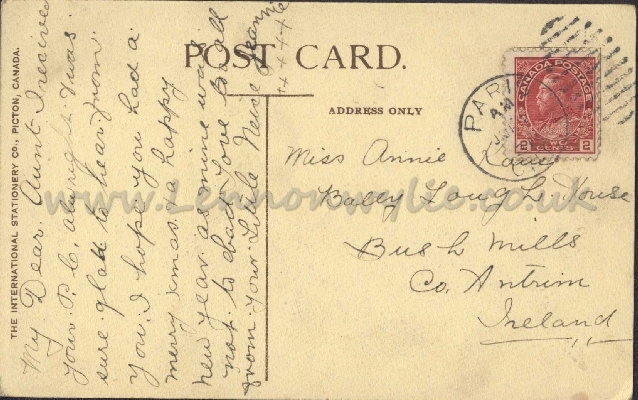 THE INTERNATIONAL STATIONERY CO., PICTON, CANADA.
POST CARD.
ADDRESS ONLY
My Dear Aunt I recived
your P.C. alright was
sure glad to hear from
you. I hope you had a
merry xmas & a happy
new year as mine was
not to bad. Love to all
from your Little Neice
++++
PARI
AM
CANADA POSTAGE
2 CENTS 2
Miss Annie Kane
Bally Lough House
Bush Mills
Co. Antrim
Ireland
www.Lennonwylie.co.uk